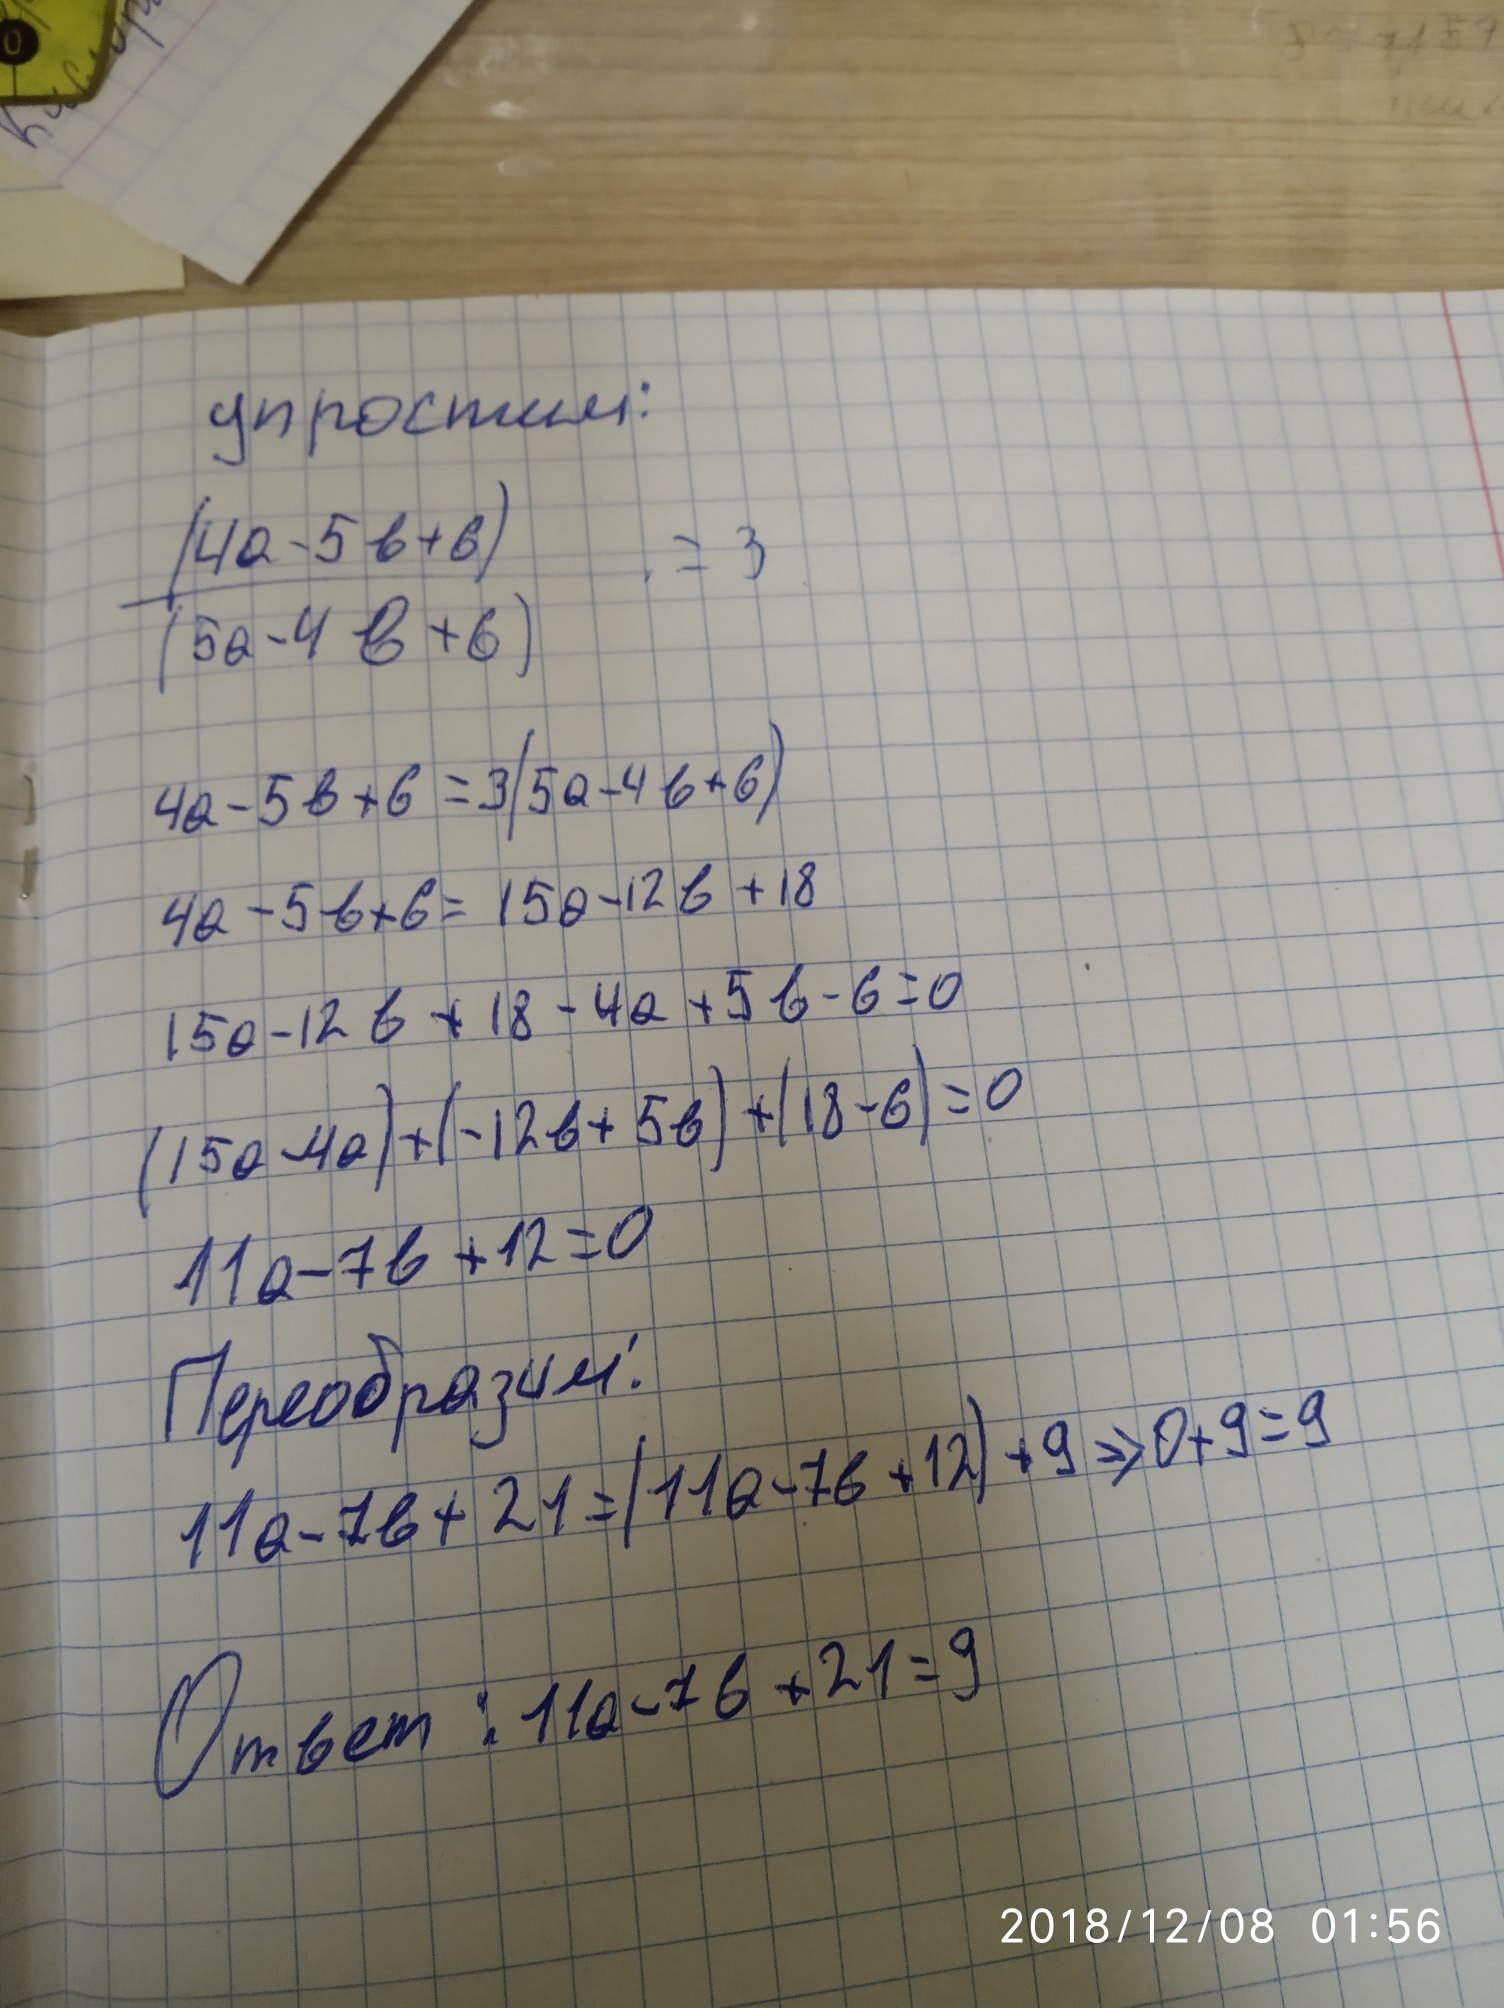 0
упростим:
(4a-5в+6)
= 3
(5a-4в+6)
4a-5в+6=3(5a-4в+6)
4a-5в+6=15a-12в+18
15a-12в+18-4a+5в-6=0
(15a-4a)+(-12в+5в)+(18-6)=0
11a-7в+12=0
Переобразим:
11a-7в+21=(11a-7в+12)+9=>0+9=9
Ответ: 11a-7в+21=9
2018/12/08 01:56